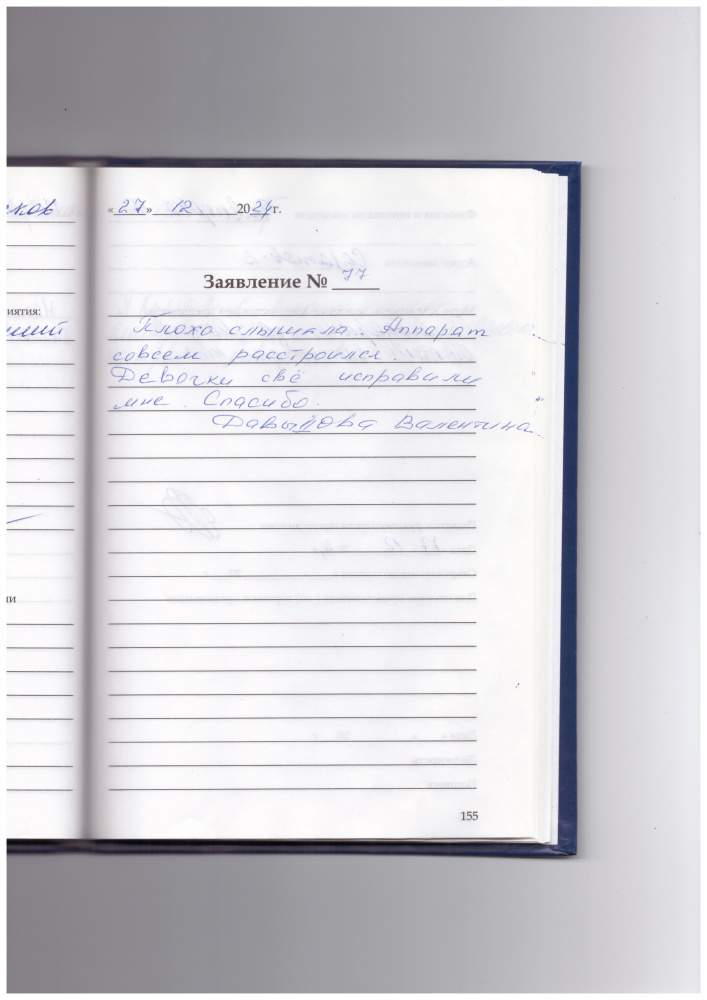 сков
«27» 12 2024г.
Заявление № 77
иятия:
Плохо слышала. Аппарат
совсем расстроился.
Девочки всё исправили
мне. Спасибо.
Давыдова Валентина
ии
155